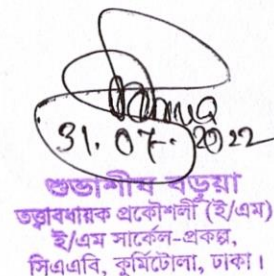 31.07.2022
শুভাশীষ বড়ুয়া
তত্ত্বাবধায়ক প্রকৌশলী (ই/এম)
ই/এম সার্কেল-প্রকল্প,
সিএএবি, কুর্মিটোলা, ঢাকা।